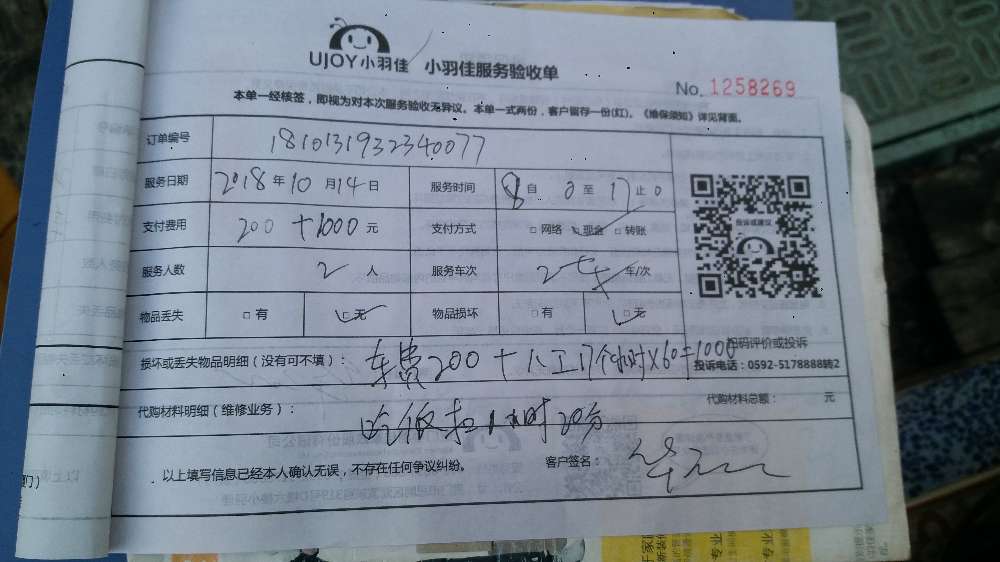 UJOY小羽佳 小羽佳服务验收单
No. 1258269
本单一经核签，即视为对本次服务验收无异议。本单一式两份，客户留存一份(红)。《维保须知》详见背面。
订单编号 1810131932340077
服务日期 2018年10月14日 服务时间 8自0至17止0
支付费用 200+1000元 支付方式 □网络 □现金 □转账
投诉或建议
服务人数 2人 服务车次 2 车/次
物品丢失 □有 □无 物品损坏 □有 □无
扫码评价或投诉
损坏或丢失物品明细（没有可不填）： 车费200+人工17个小时×60=1000
投诉电话：0592-5178888转2
代购材料明细（维修业务）： 吃饭扣1小时20分 代购材料总额： 元
以上填写信息已经本人确认无误，不存在任何争议纠纷。 客户签名：